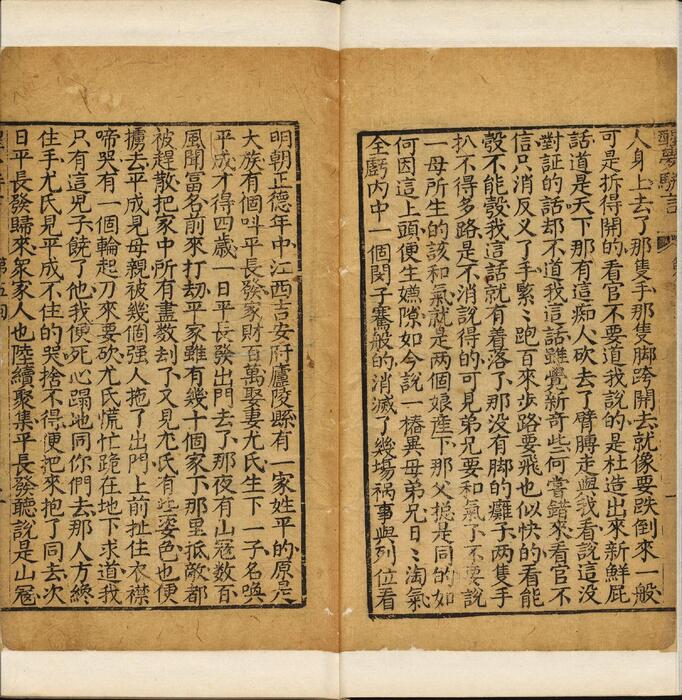 醒夢駢言
人身上去了那隻手那隻脚跨開去就像要跌倒來一般
可是拆得開的看官不要道我說的是杜造出來新鮮屁
話道是天下那有這痴人砍去了臂膊走與我看說這没
對証的話却不道我這話雖覺新奇些何嘗錯來看官不
信只消反乂了手緊〻跑百來步路要飛也似快的看能
彀不能彀我這話就有着落了那没有脚的癱子兩隻手
扒不得多路是不消說得的可見弟兄要和氣了不要說
一母所生的該和氣就是两個娘産下那父揔是同的如
何因這上頭便生嫌隙如今說一樁異母弟兄日〻淘氣
全虧内中一個閔子騫般的消滅了幾塲禍事與列位看
明朝正德年中江西吉安府廬陵縣有一家姓平的原是
大族有個叫平長發家財百萬娶妻尤氏生下一子名喚
平成才得四歲一日平長發出門去了那夜有山冦數百
風聞冨名前來打刼平家雖有幾十個家下那里抵敵都
被趕散把家中所有盡数刦了又見尤氏有些姿色也便
擄去平成見母親被幾個强人拖了出門上前扯住衣襟
啼哭有一個輪起刀來要砍尤氏慌忙跪在地下求道我
只有這兒子饒了他我便死心蹋地同你們去那人方終
住手尤氏見平成不住的哭捨不得便把來抱了同去次
日平長發歸來衆家人也陸續聚集平長發聽說是山冦
第五囘